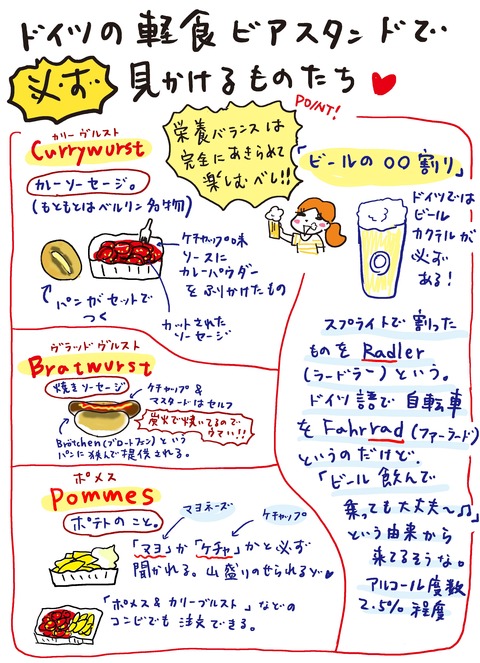 ドイツの軽食ビアスタンドで
必ず見かけるものたち
POINT!
栄養バランスは
完全にあきらめて
楽しむべし!!
カリー ヴルスト
Currywurst
カレーソーセージ。
(もともとはベルリン名物)
ケチャップ味
ソースに
カレーパウダー
をふりかけたもの
パンがセットで
つく
カットされた
ソーセージ
ヴラッド ヴルスト
Bratwurst
焼きソーセージ
ケチャップ &
マスタードはセルフ
炭火で焼いてるので
うまい!!
Brötchen(ブロートフェン)という
パンに挟んで提供される。
ポメス
Pommes
ポテトのこと。
マヨネーズ
ケチャップ
「マヨ」か「ケチャ」かと必ず
聞かれる。山盛りのせられるぞ
「ポメス&カリーブルスト」などの
コンビでも注文できる。
「ビールの〇〇割り」
ドイツでは
ビール
カクテルが
必ず
ある!
スプライトで割った
ものを Radler
(ラードラー)という。
ドイツ語で自転車
を Fahrrad(ファーラード)
というのだけど、
「ビール飲んで
乗っても大丈夫〜♫」
という由来から
来てるそうな。
アルコール度数
2.5%程度